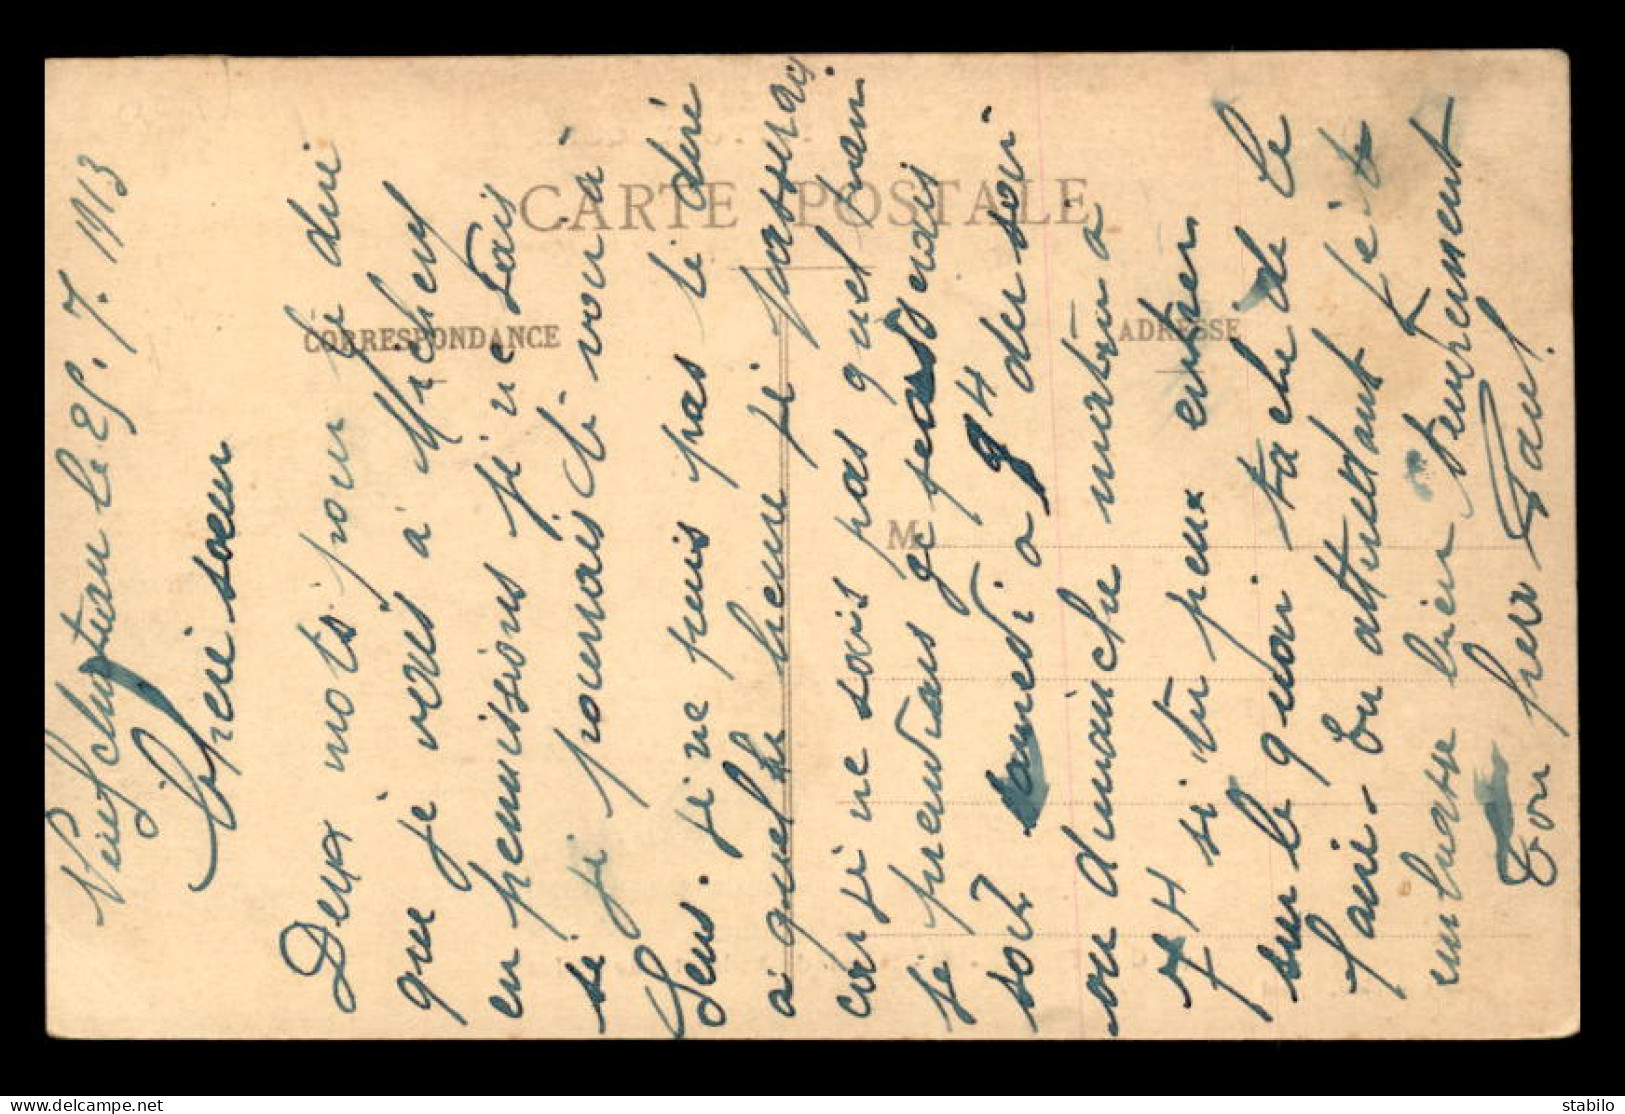 Neufchateau le 25. 7. 1913
Chère soeur
Deux mots pour te dire
que je vais à Michery
en permissions je ne sais
si je pourrais te voir à
Sens. je ne puis pas te dire
à quelle heure je passerai
car je ne sais pas quel train
je prendrais je prendrais
soit samedi à 9 h du soir
ou dimanche matin à
7 h si tu peux
sur le quai tache de le
faire. En attendant je te
embrasse bien
Ton frère Paul.
CARTE POSTALE
CORRESPONDANCE
ADRESSE
M
delcampe.net
stabilo